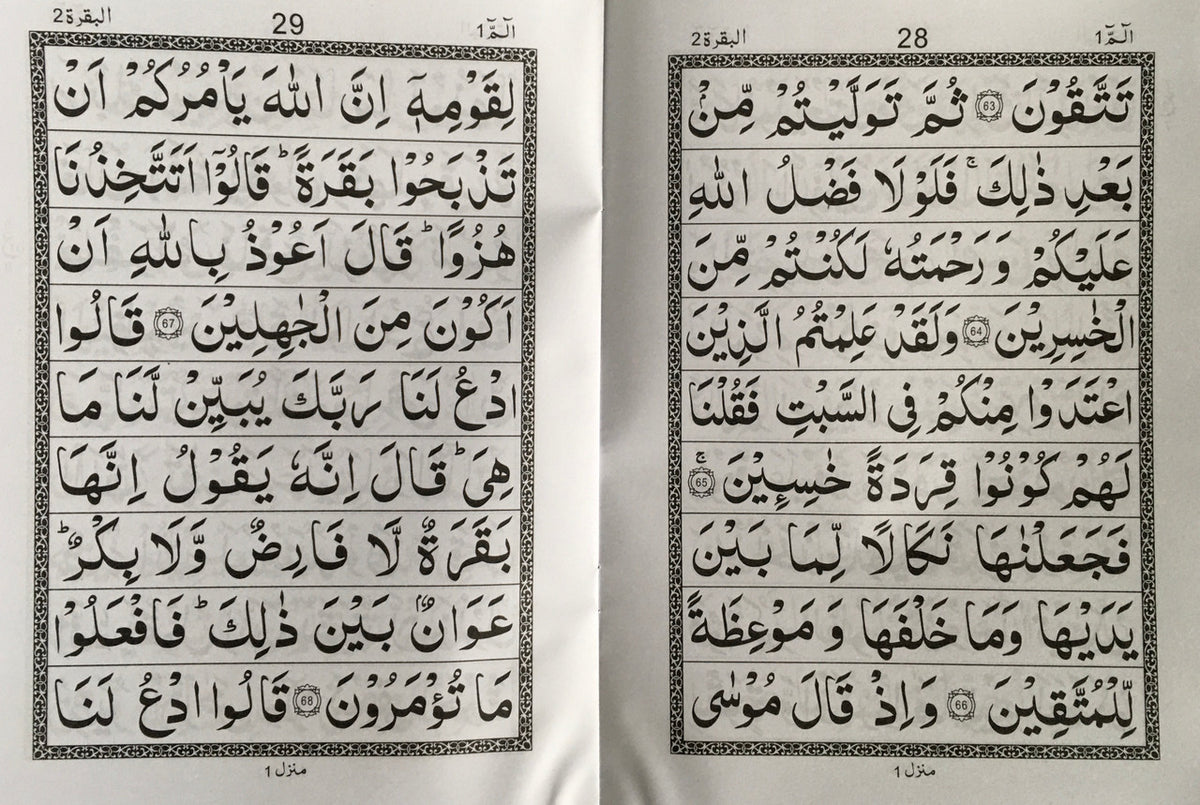 الٓمّٓ 1 28 البقرة 2
تَتَّقُوْنَ ۝63 ثُمَّ تَوَلَّيْتُمْ مِّنْۢ
بَعْدِ ذٰلِكَ ۚ فَلَوْلَا فَضْلُ اللّٰهِ
عَلَيْكُمْ وَرَحْمَتُهٗ لَكُنْتُمْ مِّنَ
الْخٰسِرِيْنَ ۝64 وَلَقَدْ عَلِمْتُمُ الَّذِيْنَ
اعْتَدَوْا مِنْكُمْ فِى السَّبْتِ فَقُلْنَا
لَهُمْ كُوْنُوْا قِرَدَةً خٰسِـِٕيْنَ ۝65ۚ
فَجَعَلْنٰهَا نَكَالًا لِّمَا بَيْنَ
يَدَيْهَا وَمَا خَلْفَهَا وَمَوْعِظَةً
لِّلْمُتَّقِيْنَ ۝66 وَاِذْ قَالَ مُوْسٰى
منزل 1
الٓمّٓ 1 29 البقرة 2
لِقَوْمِهٖٓ اِنَّ اللّٰهَ يَاْمُرُكُمْ اَنْ
تَذْبَحُوْا بَقَرَةً ؕ قَالُوْٓا اَتَتَّخِذُنَا
هُزُوًا ؕ قَالَ اَعُوْذُ بِاللّٰهِ اَنْ
اَكُوْنَ مِنَ الْجٰهِلِيْنَ ۝67 قَالُوا
ادْعُ لَنَا رَبَّكَ يُبَيِّنْ لَّنَا مَا
هِىَ ؕ قَالَ اِنَّهٗ يَقُوْلُ اِنَّهَا
بَقَرَةٌ لَّا فَارِضٌ وَّلَا بِكْرٌ ؕ
عَوَانٌۢ بَيْنَ ذٰلِكَ ؕ فَافْعَلُوْا
مَا تُؤْمَرُوْنَ ۝68 قَالُوا ادْعُ لَنَا
منزل 1